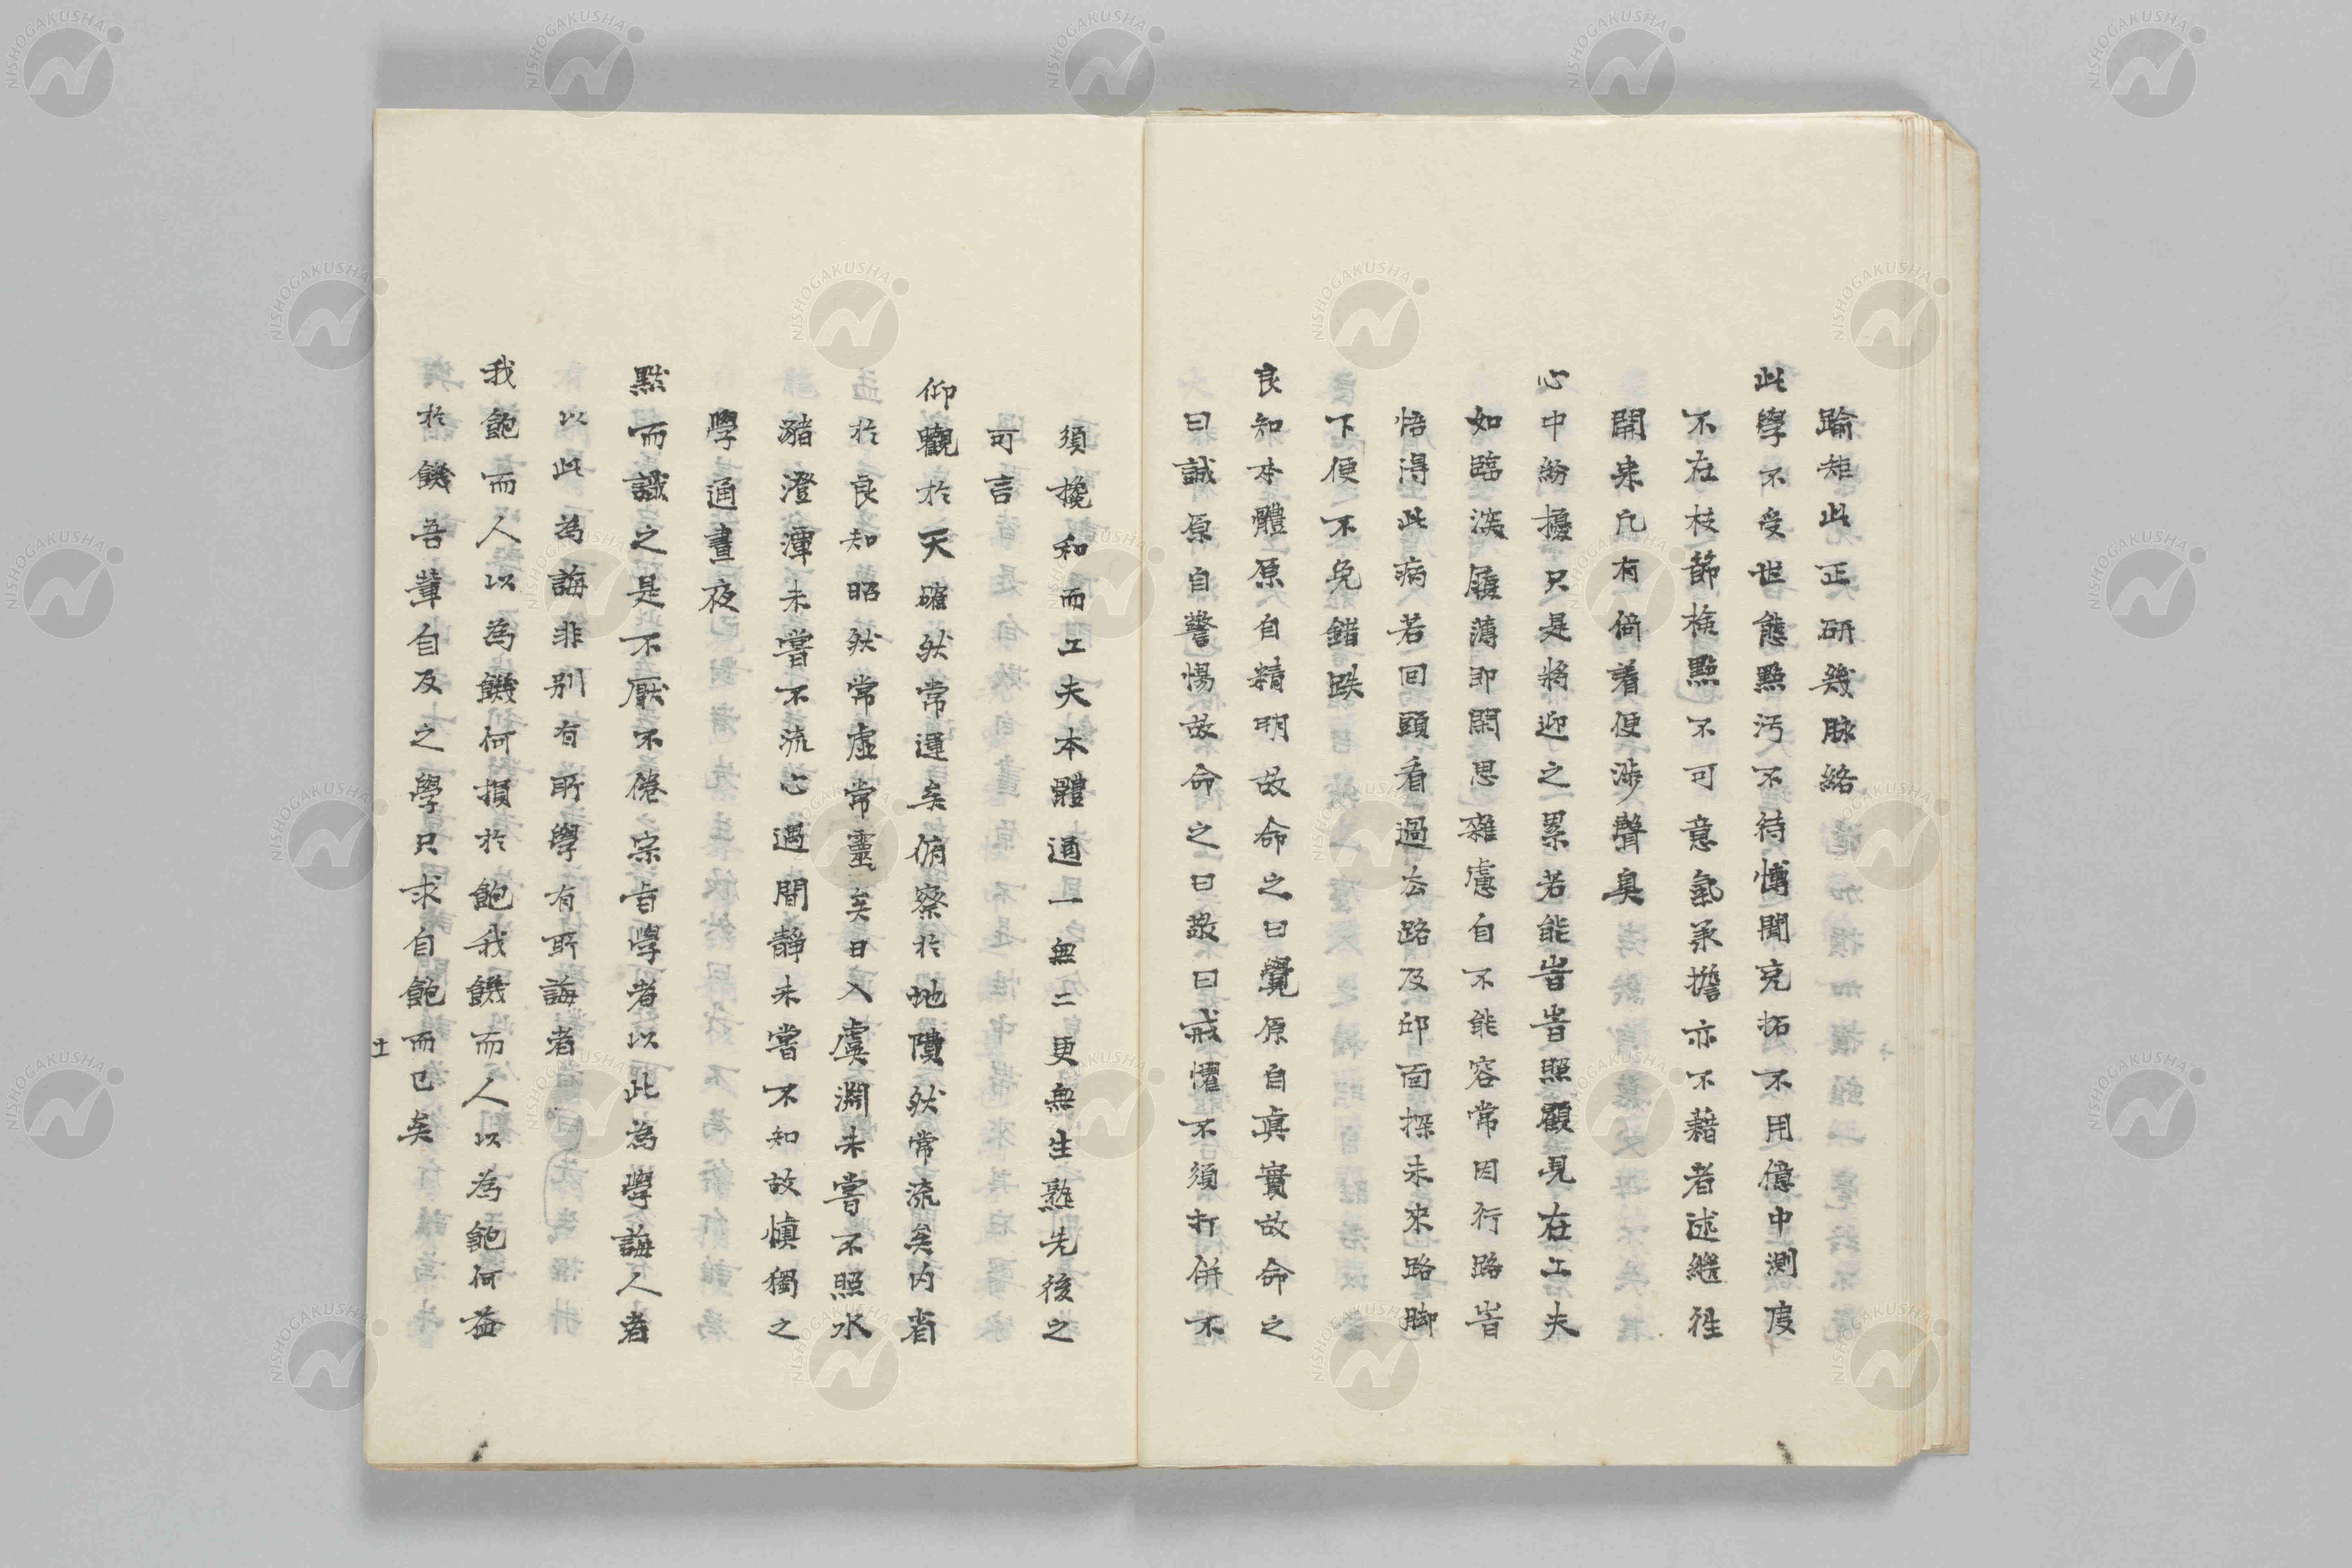 踰矩此正研幾脉絡
此學不受世態點汚不待博聞充拓不用億中測度
不在枝節檢點不可意氣承擔亦不藉者述繼徃
開来凢有倚着便渉聲臭
心中紛擾只是將迎之累若能旹旹照顧見在工夫
如臨深履薄即閑思雜慮自不能容常因行路旹
悟得此病若回頭看過去路及邱面探未來路脚
下便不免錯跌
良知本體原自精明故命之曰覺原自眞實故命之
曰誠原自警惕故命之曰敬曰戒懼不須打併不
須攙和而工夫本體通一無二更無生熟先後之
可言
仰觀於天確然常運矣俯察於地隤然常流矣内省
於良知昭然常虚常靈矣日入虞淵未嘗不照水
瀦澄潭未嘗不流心過閒靜未嘗不知故愼獨之
學通晝夜
黙而識之是不厭不倦之宗旨學者以此為學誨人者
以此為誨非別有所學有所誨者
我飽而人以為饑何損於飽我饑而人以為飽何益
於饑吾輩自及之學只求自飽而已矣
十一
NISHOGAKUSHA